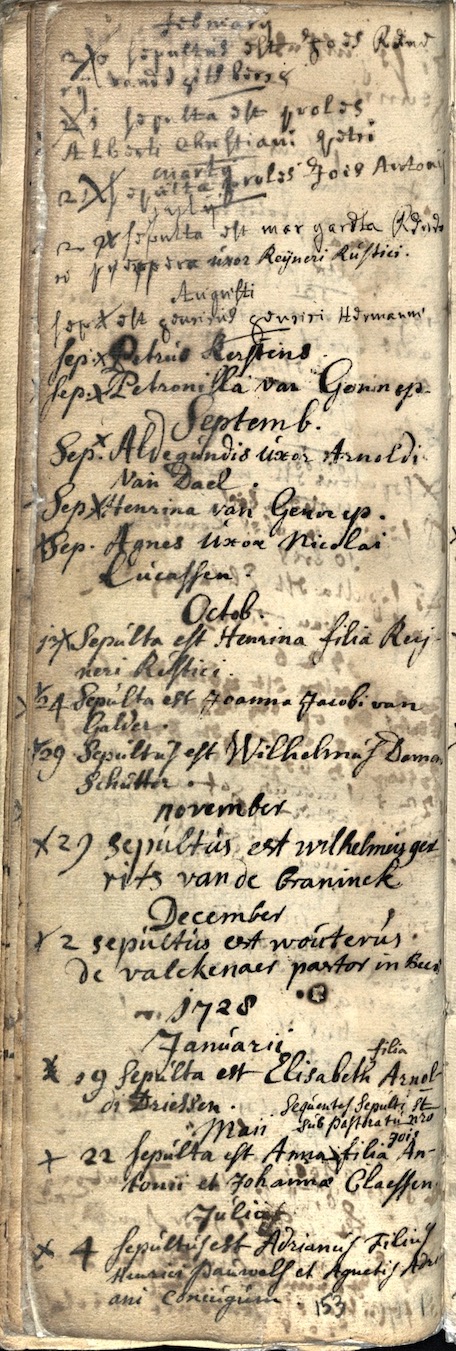 february
sepultus est Joes
sepulta est proles
Alberti Christiani petri
marty
sepulta proles Jois Antonij
July
sepulta est margareta
uxor Reijneri Rustici.
Augusti
sep est henrici Hermanni
sep. Petrus Kerstens.
sep. Petronilla van Gennep.
Septemb.
Sep. Aldegundis uxor Arnoldi
Van Dael.
Sep Henrina van Gennep.
Sep. Agnes uxor Nicolai
Lucassen.
Octob.
Sepulta est Henrina filia Reij-
neri Rustici.
24 Sepulta est Joanna Jacobi van
Galder.
29 Sepultus est Wilhelmus
Schutter.
november
29 sepultus est wilhelmus ger
rits van de Graninck
December
2 sepultus est wouterus
de valckenaer pastor in
1728
Januarii
filia
19 Sepulta est Elisabeth Arnol-
di Driessen.
Sequentes Sepulti st
sub Pastoratu nro
Maii
22 sepulta est Anna filia An-
Jois
tonii et Johanna Claessen
Julii
4 sepultus est Adrianus Filius
Henrici Pauwels et Agnetis Adri
ani conjugum.
153